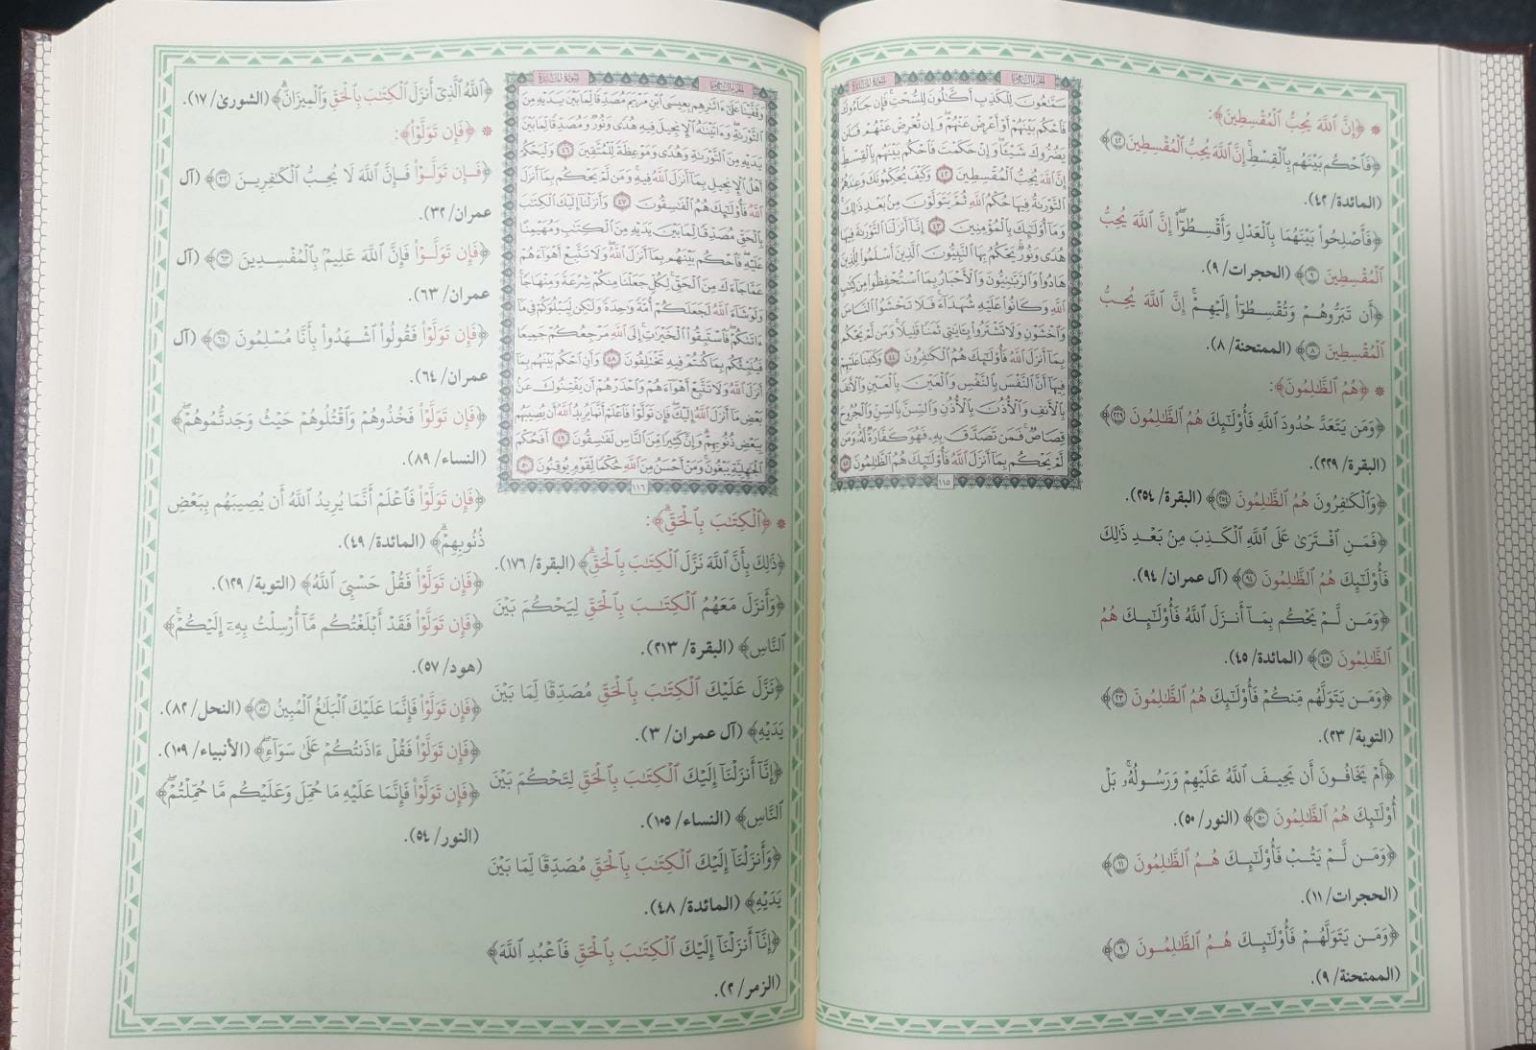 * ﴿إِنَّ ٱللَّهَ يُحِبُّ ٱلْمُقْسِطِينَ﴾:
﴿فَٱحْكُم بَيْنَهُم بِٱلْقِسْطِۚ إِنَّ ٱللَّهَ يُحِبُّ ٱلْمُقْسِطِينَ ٤٢﴾
(المائدة/ ٤٢).
﴿فَأَصْلِحُوا۟ بَيْنَهُمَا بِٱلْعَدْلِ وَأَقْسِطُوٓا۟ۖ إِنَّ ٱللَّهَ يُحِبُّ
ٱلْمُقْسِطِينَ ٩﴾ (الحجرات/ ٩).
﴿أَن تَبَرُّوهُمْ وَتُقْسِطُوٓا۟ إِلَيْهِمْۚ إِنَّ ٱللَّهَ يُحِبُّ
ٱلْمُقْسِطِينَ ٨﴾ (الممتحنة/ ٨).
* ﴿هُمُ ٱلظَّٰلِمُونَ﴾:
﴿وَمَن يَتَعَدَّ حُدُودَ ٱللَّهِ فَأُو۟لَٰٓئِكَ هُمُ ٱلظَّٰلِمُونَ ٢٢٩﴾
(البقرة/ ٢٢٩).
﴿وَٱلْكَٰفِرُونَ هُمُ ٱلظَّٰلِمُونَ ٢٥٤﴾ (البقرة/ ٢٥٤).
﴿فَمَنِ ٱفْتَرَىٰ عَلَى ٱللَّهِ ٱلْكَذِبَ مِنۢ بَعْدِ ذَٰلِكَ
فَأُو۟لَٰٓئِكَ هُمُ ٱلظَّٰلِمُونَ ٩٤﴾ (آل عمران/ ٩٤).
﴿وَمَن لَّمْ يَحْكُم بِمَآ أَنزَلَ ٱللَّهُ فَأُو۟لَٰٓئِكَ هُمُ
ٱلظَّٰلِمُونَ ٤٥﴾ (المائدة/ ٤٥).
﴿وَمَن يَتَوَلَّهُم مِّنكُمْ فَأُو۟لَٰٓئِكَ هُمُ ٱلظَّٰلِمُونَ ٢٣﴾
(التوبة/ ٢٣).
﴿أَمْ يَخَافُونَ أَن يَحِيفَ ٱللَّهُ عَلَيْهِمْ وَرَسُولُهُۥۚ بَلْ
أُو۟لَٰٓئِكَ هُمُ ٱلظَّٰلِمُونَ ٥٠﴾ (النور/ ٥٠).
﴿وَمَن لَّمْ يَتُبْ فَأُو۟لَٰٓئِكَ هُمُ ٱلظَّٰلِمُونَ ١١﴾
(الحجرات/ ١١).
﴿وَمَن يَتَوَلَّهُمْ فَأُو۟لَٰٓئِكَ هُمُ ٱلظَّٰلِمُونَ ٩﴾
(الممتحنة/ ٩).
سَمَّٰعُونَ لِلْكَذِبِ أَكَّٰلُونَ لِلسُّحْتِۚ فَإِن جَآءُوكَ
فَٱحْكُم بَيْنَهُمْ أَوْ أَعْرِضْ عَنْهُمْۖ وَإِن تُعْرِضْ عَنْهُمْ فَلَن
يَضُرُّوكَ شَيْـًٔاۖ وَإِنْ حَكَمْتَ فَٱحْكُم بَيْنَهُم بِٱلْقِسْطِۚ
إِنَّ ٱللَّهَ يُحِبُّ ٱلْمُقْسِطِينَ ٤٢ وَكَيْفَ يُحَكِّمُونَكَ وَعِندَهُمُ
ٱلتَّوْرَىٰةُ فِيهَا حُكْمُ ٱللَّهِ ثُمَّ يَتَوَلَّوْنَ مِنۢ بَعْدِ ذَٰلِكَۚ
وَمَآ أُو۟لَٰٓئِكَ بِٱلْمُؤْمِنِينَ ٤٣ إِنَّآ أَنزَلْنَا ٱلتَّوْرَىٰةَ فِيهَا
هُدًى وَنُورٌۚ يَحْكُمُ بِهَا ٱلنَّبِيُّونَ ٱلَّذِينَ أَسْلَمُوا۟ لِلَّذِينَ
هَادُوا۟ وَٱلرَّبَّٰنِيُّونَ وَٱلْأَحْبَارُ بِمَا ٱسْتُحْفِظُوا۟ مِن كِتَٰبِ
ٱللَّهِ وَكَانُوا۟ عَلَيْهِ شُهَدَآءَۚ فَلَا تَخْشَوُا۟ ٱلنَّاسَ
وَٱخْشَوْنِ وَلَا تَشْتَرُوا۟ بِـَٔايَٰتِى ثَمَنًا قَلِيلًاۚ وَمَن لَّمْ يَحْكُم
بِمَآ أَنزَلَ ٱللَّهُ فَأُو۟لَٰٓئِكَ هُمُ ٱلْكَٰفِرُونَ ٤٤ وَكَتَبْنَا عَلَيْهِمْ
فِيهَآ أَنَّ ٱلنَّفْسَ بِٱلنَّفْسِ وَٱلْعَيْنَ بِٱلْعَيْنِ وَٱلْأَنفَ
بِٱلْأَنفِ وَٱلْأُذُنَ بِٱلْأُذُنِ وَٱلسِّنَّ بِٱلسِّنِّ وَٱلْجُرُوحَ
قِصَاصٌۚ فَمَن تَصَدَّقَ بِهِۦ فَهُوَ كَفَّارَةٌ لَّهُۥۚ وَمَن
لَّمْ يَحْكُم بِمَآ أَنزَلَ ٱللَّهُ فَأُو۟لَٰٓئِكَ هُمُ ٱلظَّٰلِمُونَ ٤٥
١١٥
وَقَفَّيْنَا عَلَىٰٓ ءَاثَٰرِهِم بِعِيسَى ٱبْنِ مَرْيَمَ مُصَدِّقًا لِّمَا بَيْنَ يَدَيْهِ مِنَ
ٱلتَّوْرَىٰةِۖ وَءَاتَيْنَٰهُ ٱلْإِنجِيلَ فِيهِ هُدًى وَنُورٌ وَمُصَدِّقًا لِّمَا بَيْنَ
يَدَيْهِ مِنَ ٱلتَّوْرَىٰةِ وَهُدًى وَمَوْعِظَةً لِّلْمُتَّقِينَ ٤٦ وَلْيَحْكُمْ
أَهْلُ ٱلْإِنجِيلِ بِمَآ أَنزَلَ ٱللَّهُ فِيهِۚ وَمَن لَّمْ يَحْكُم بِمَآ أَنزَلَ
ٱللَّهُ فَأُو۟لَٰٓئِكَ هُمُ ٱلْفَٰسِقُونَ ٤٧ وَأَنزَلْنَآ إِلَيْكَ ٱلْكِتَٰبَ
بِٱلْحَقِّ مُصَدِّقًا لِّمَا بَيْنَ يَدَيْهِ مِنَ ٱلْكِتَٰبِ وَمُهَيْمِنًا
عَلَيْهِۖ فَٱحْكُم بَيْنَهُم بِمَآ أَنزَلَ ٱللَّهُۖ وَلَا تَتَّبِعْ أَهْوَآءَهُمْ
عَمَّا جَآءَكَ مِنَ ٱلْحَقِّۚ لِكُلٍّ جَعَلْنَا مِنكُمْ شِرْعَةً وَمِنْهَاجًاۚ
وَلَوْ شَآءَ ٱللَّهُ لَجَعَلَكُمْ أُمَّةً وَٰحِدَةً وَلَٰكِن لِّيَبْلُوَكُمْ فِى مَآ
ءَاتَىٰكُمْۖ فَٱسْتَبِقُوا۟ ٱلْخَيْرَٰتِۚ إِلَى ٱللَّهِ مَرْجِعُكُمْ جَمِيعًا
فَيُنَبِّئُكُم بِمَا كُنتُمْ فِيهِ تَخْتَلِفُونَ ٤٨ وَأَنِ ٱحْكُم بَيْنَهُم بِمَآ
أَنزَلَ ٱللَّهُ وَلَا تَتَّبِعْ أَهْوَآءَهُمْ وَٱحْذَرْهُمْ أَن يَفْتِنُوكَ عَنۢ
بَعْضِ مَآ أَنزَلَ ٱللَّهُ إِلَيْكَۖ فَإِن تَوَلَّوْا۟ فَٱعْلَمْ أَنَّمَا يُرِيدُ ٱللَّهُ أَن يُصِيبَهُم
بِبَعْضِ ذُنُوبِهِمْۗ وَإِنَّ كَثِيرًا مِّنَ ٱلنَّاسِ لَفَٰسِقُونَ ٤٩ أَفَحُكْمَ
ٱلْجَٰهِلِيَّةِ يَبْغُونَۚ وَمَنْ أَحْسَنُ مِنَ ٱللَّهِ حُكْمًا لِّقَوْمٍ يُوقِنُونَ ٥٠
١١٦
* ﴿ٱلْكِتَٰبَ بِٱلْحَقِّ﴾:
﴿ذَٰلِكَ بِأَنَّ ٱللَّهَ نَزَّلَ ٱلْكِتَٰبَ بِٱلْحَقِّۗ﴾ (البقرة/ ١٧٦).
﴿وَأَنزَلَ مَعَهُمُ ٱلْكِتَٰبَ بِٱلْحَقِّ لِيَحْكُمَ بَيْنَ
ٱلنَّاسِ﴾ (البقرة/ ٢١٣).
﴿نَزَّلَ عَلَيْكَ ٱلْكِتَٰبَ بِٱلْحَقِّ مُصَدِّقًا لِّمَا بَيْنَ
يَدَيْهِ﴾ (آل عمران/ ٣).
﴿إِنَّآ أَنزَلْنَآ إِلَيْكَ ٱلْكِتَٰبَ بِٱلْحَقِّ لِتَحْكُمَ بَيْنَ
ٱلنَّاسِ﴾ (النساء/ ١٠٥).
﴿وَأَنزَلْنَآ إِلَيْكَ ٱلْكِتَٰبَ بِٱلْحَقِّ مُصَدِّقًا لِّمَا بَيْنَ
يَدَيْهِ﴾ (المائدة/ ٤٨).
﴿إِنَّآ أَنزَلْنَآ إِلَيْكَ ٱلْكِتَٰبَ بِٱلْحَقِّ فَٱعْبُدِ ٱللَّهَ﴾
(الزمر/ ٢).
﴿ٱللَّهُ ٱلَّذِىٓ أَنزَلَ ٱلْكِتَٰبَ بِٱلْحَقِّ وَٱلْمِيزَانَۗ﴾ (الشورى/ ١٧).
* ﴿فَإِن تَوَلَّوْا۟﴾:
﴿فَإِن تَوَلَّوْا۟ فَإِنَّ ٱللَّهَ لَا يُحِبُّ ٱلْكَٰفِرِينَ ٣٢﴾ (آل
عمران/ ٣٢).
﴿فَإِن تَوَلَّوْا۟ فَإِنَّ ٱللَّهَ عَلِيمٌۢ بِٱلْمُفْسِدِينَ ٦٣﴾ (آل
عمران/ ٦٣).
﴿فَإِن تَوَلَّوْا۟ فَقُولُوا۟ ٱشْهَدُوا۟ بِأَنَّا مُسْلِمُونَ ٦٤﴾ (آل
عمران/ ٦٤).
﴿فَإِن تَوَلَّوْا۟ فَخُذُوهُمْ وَٱقْتُلُوهُمْ حَيْثُ وَجَدتُّمُوهُمْۖ﴾
(النساء/ ٨٩).
﴿فَإِن تَوَلَّوْا۟ فَٱعْلَمْ أَنَّمَا يُرِيدُ ٱللَّهُ أَن يُصِيبَهُم بِبَعْضِ
ذُنُوبِهِمْۗ﴾ (المائدة/ ٤٩).
﴿فَإِن تَوَلَّوْا۟ فَقُلْ حَسْبِىَ ٱللَّهُ﴾ (التوبة/ ١٢٩).
﴿فَإِن تَوَلَّوْا۟ فَقَدْ أَبْلَغْتُكُم مَّآ أُرْسِلْتُ بِهِۦٓ إِلَيْكُمْۚ﴾
(هود/ ٥٧).
﴿فَإِن تَوَلَّوْا۟ فَإِنَّمَا عَلَيْكَ ٱلْبَلَٰغُ ٱلْمُبِينُ ٨٢﴾ (النحل/ ٨٢).
﴿فَإِن تَوَلَّوْا۟ فَقُلْ ءَاذَنتُكُمْ عَلَىٰ سَوَآءٍۖ﴾ (الأنبياء/ ١٠٩).
﴿فَإِن تَوَلَّوْا۟ فَإِنَّمَا عَلَيْهِ مَا حُمِّلَ وَعَلَيْكُم مَّا حُمِّلْتُمْۖ﴾
(النور/ ٥٤).